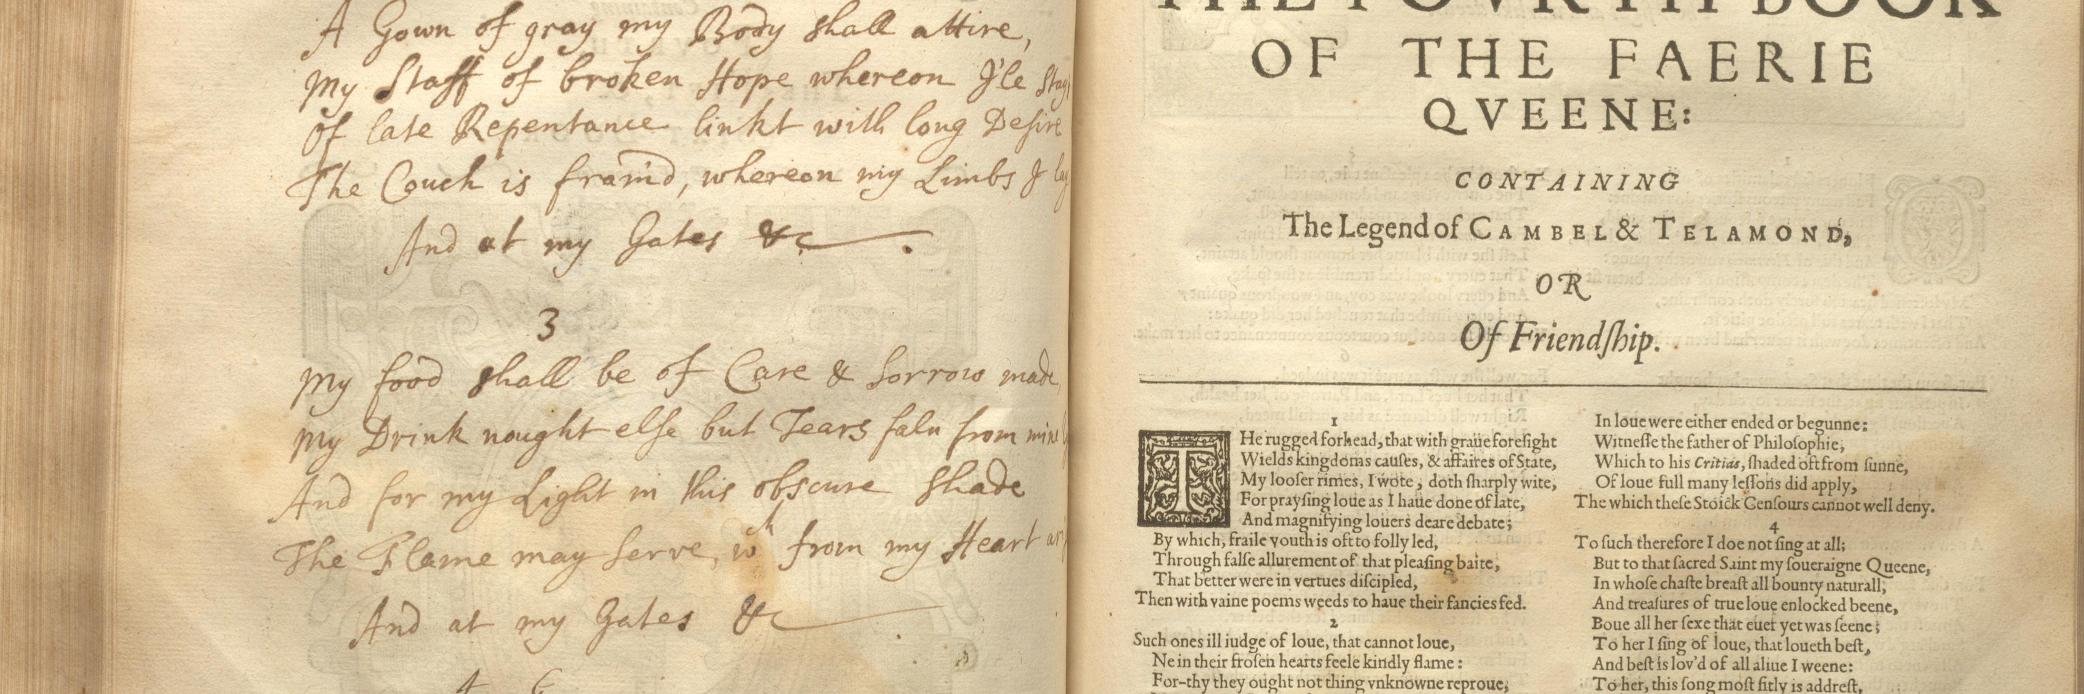 A Gown of gray my Body shall attire,
My Staff of broken Hope whereon I'le Stay,
Of late Repentance linkt with long Desire
The Couch is fram'd, whereon my Limbs I lay
And at my Gates &c
3
My food shall be of Care & Sorrow made,
My Drink nought else but Tears faln from mine
And for my Light in this obscure Shade
The Flame may serve, wch from my Heart
And at my Gates &c
THE FOVRTH BOOK
OF THE FAERIE
QVEENE:
CONTAINING
The Legend of CAMBEL & TELAMOND,
OR
Of Friendſhip.
1
THe rugged forhead, that with graue foreſight
Wields kingdoms cauſes, & affaires of State,
My looſer rimes, I wote, doth ſharply wite,
For prayſing loue as I haue done of late,
And magnifying louers deare debate;
By which, fraile youth is oft to folly led,
Through falſe allurement of that pleaſing baite,
That better were in vertues diſcipled,
Then with vaine poems weeds to haue their fancies fed.
2
Such ones ill iudge of loue, that cannot loue,
Ne in their froſen hearts feele kindly flame:
For-thy they ought not thing vnknowne reproue,
In loue were either ended or begunne:
Witneſſe the father of Philoſophie,
Which to his Critias, ſhaded oft from ſunne,
Of loue full many leſſons did apply,
The which theſe Stoick Cenſours cannot well deny.
4
To ſuch therefore I doe not ſing at all;
But to that ſacred Saint my ſoueraigne Queene,
In whoſe chaſte breaſt all bounty naturall,
And treaſures of true loue enlocked beene,
Boue all her ſexe that euer yet was ſeene;
To her I ſing of loue, that loueth beſt,
And beſt is lov'd of all aliue I weene:
To her, this ſong moſt fitly is addreſt,